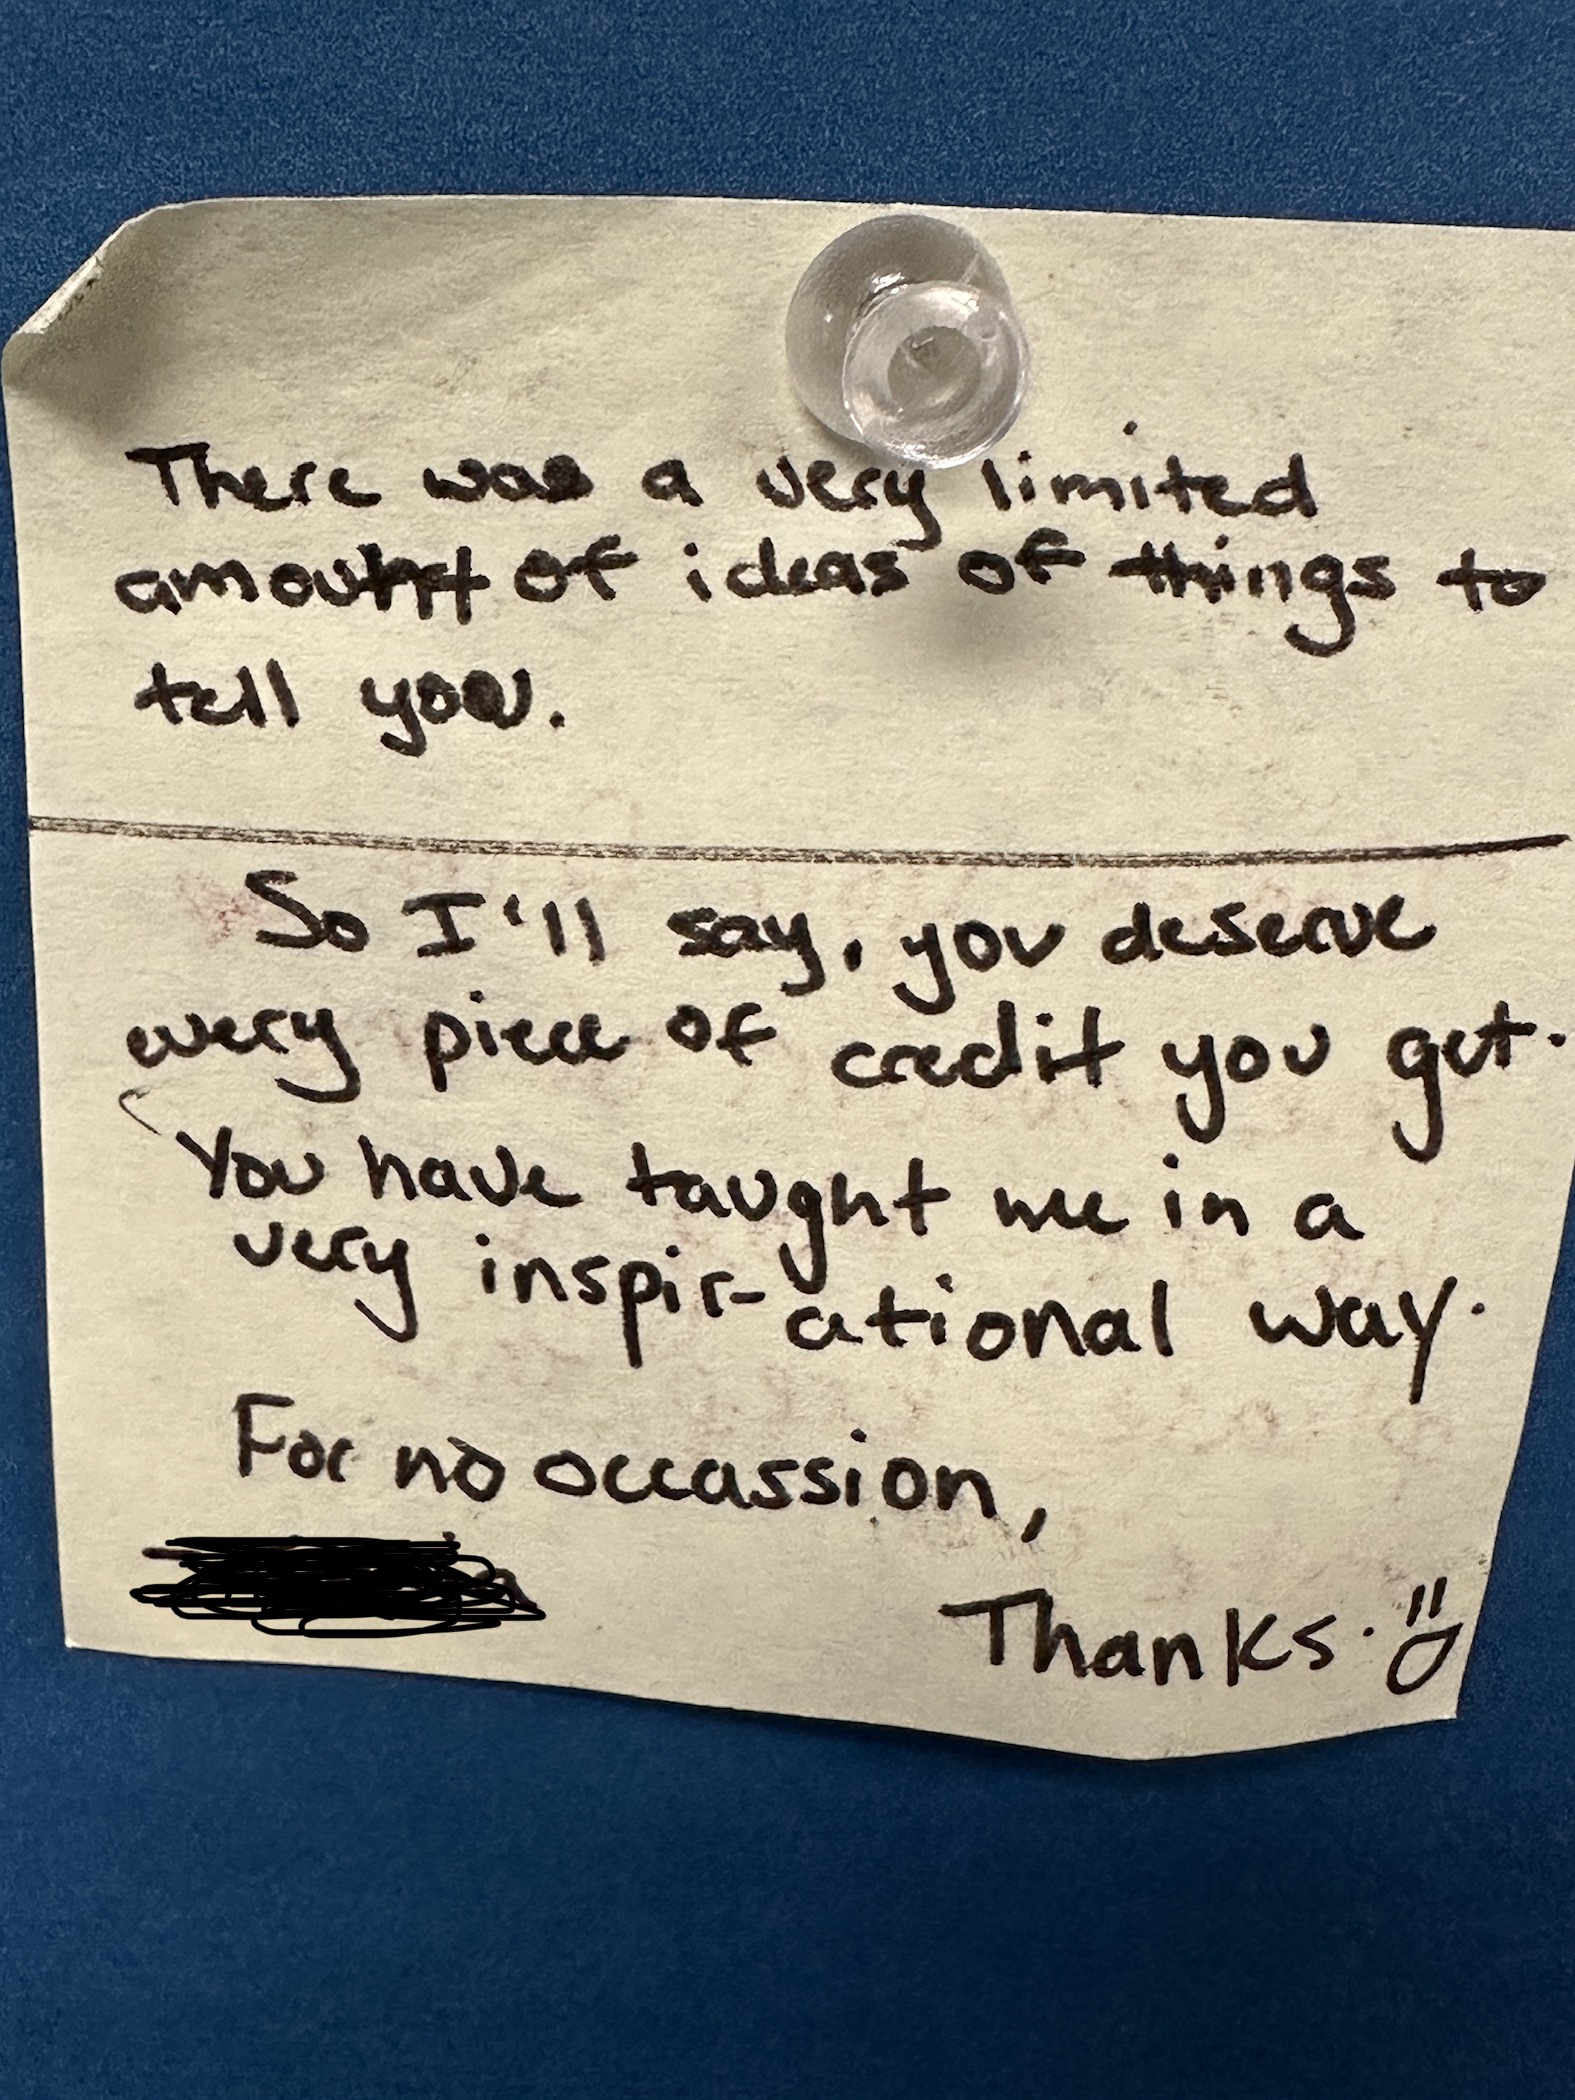 There was a very limited
amount of ideas of things to
tell you.
So I'll say, you deserve
every piece of credit you get.
You have taught me in a
very inspir-ational way.
For no occassion,
Thanks. :D